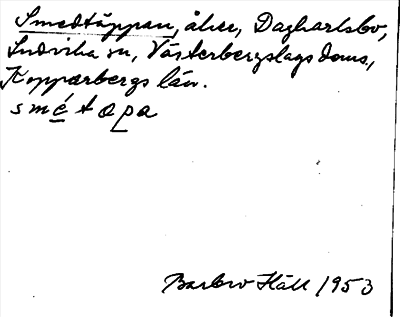 Smedtäppan, åker, Dagkarlsbo,
Ludvika sn, Västerbergslags doms.,
Kopparbergs län.
smétapa
Barbro Häll 1953